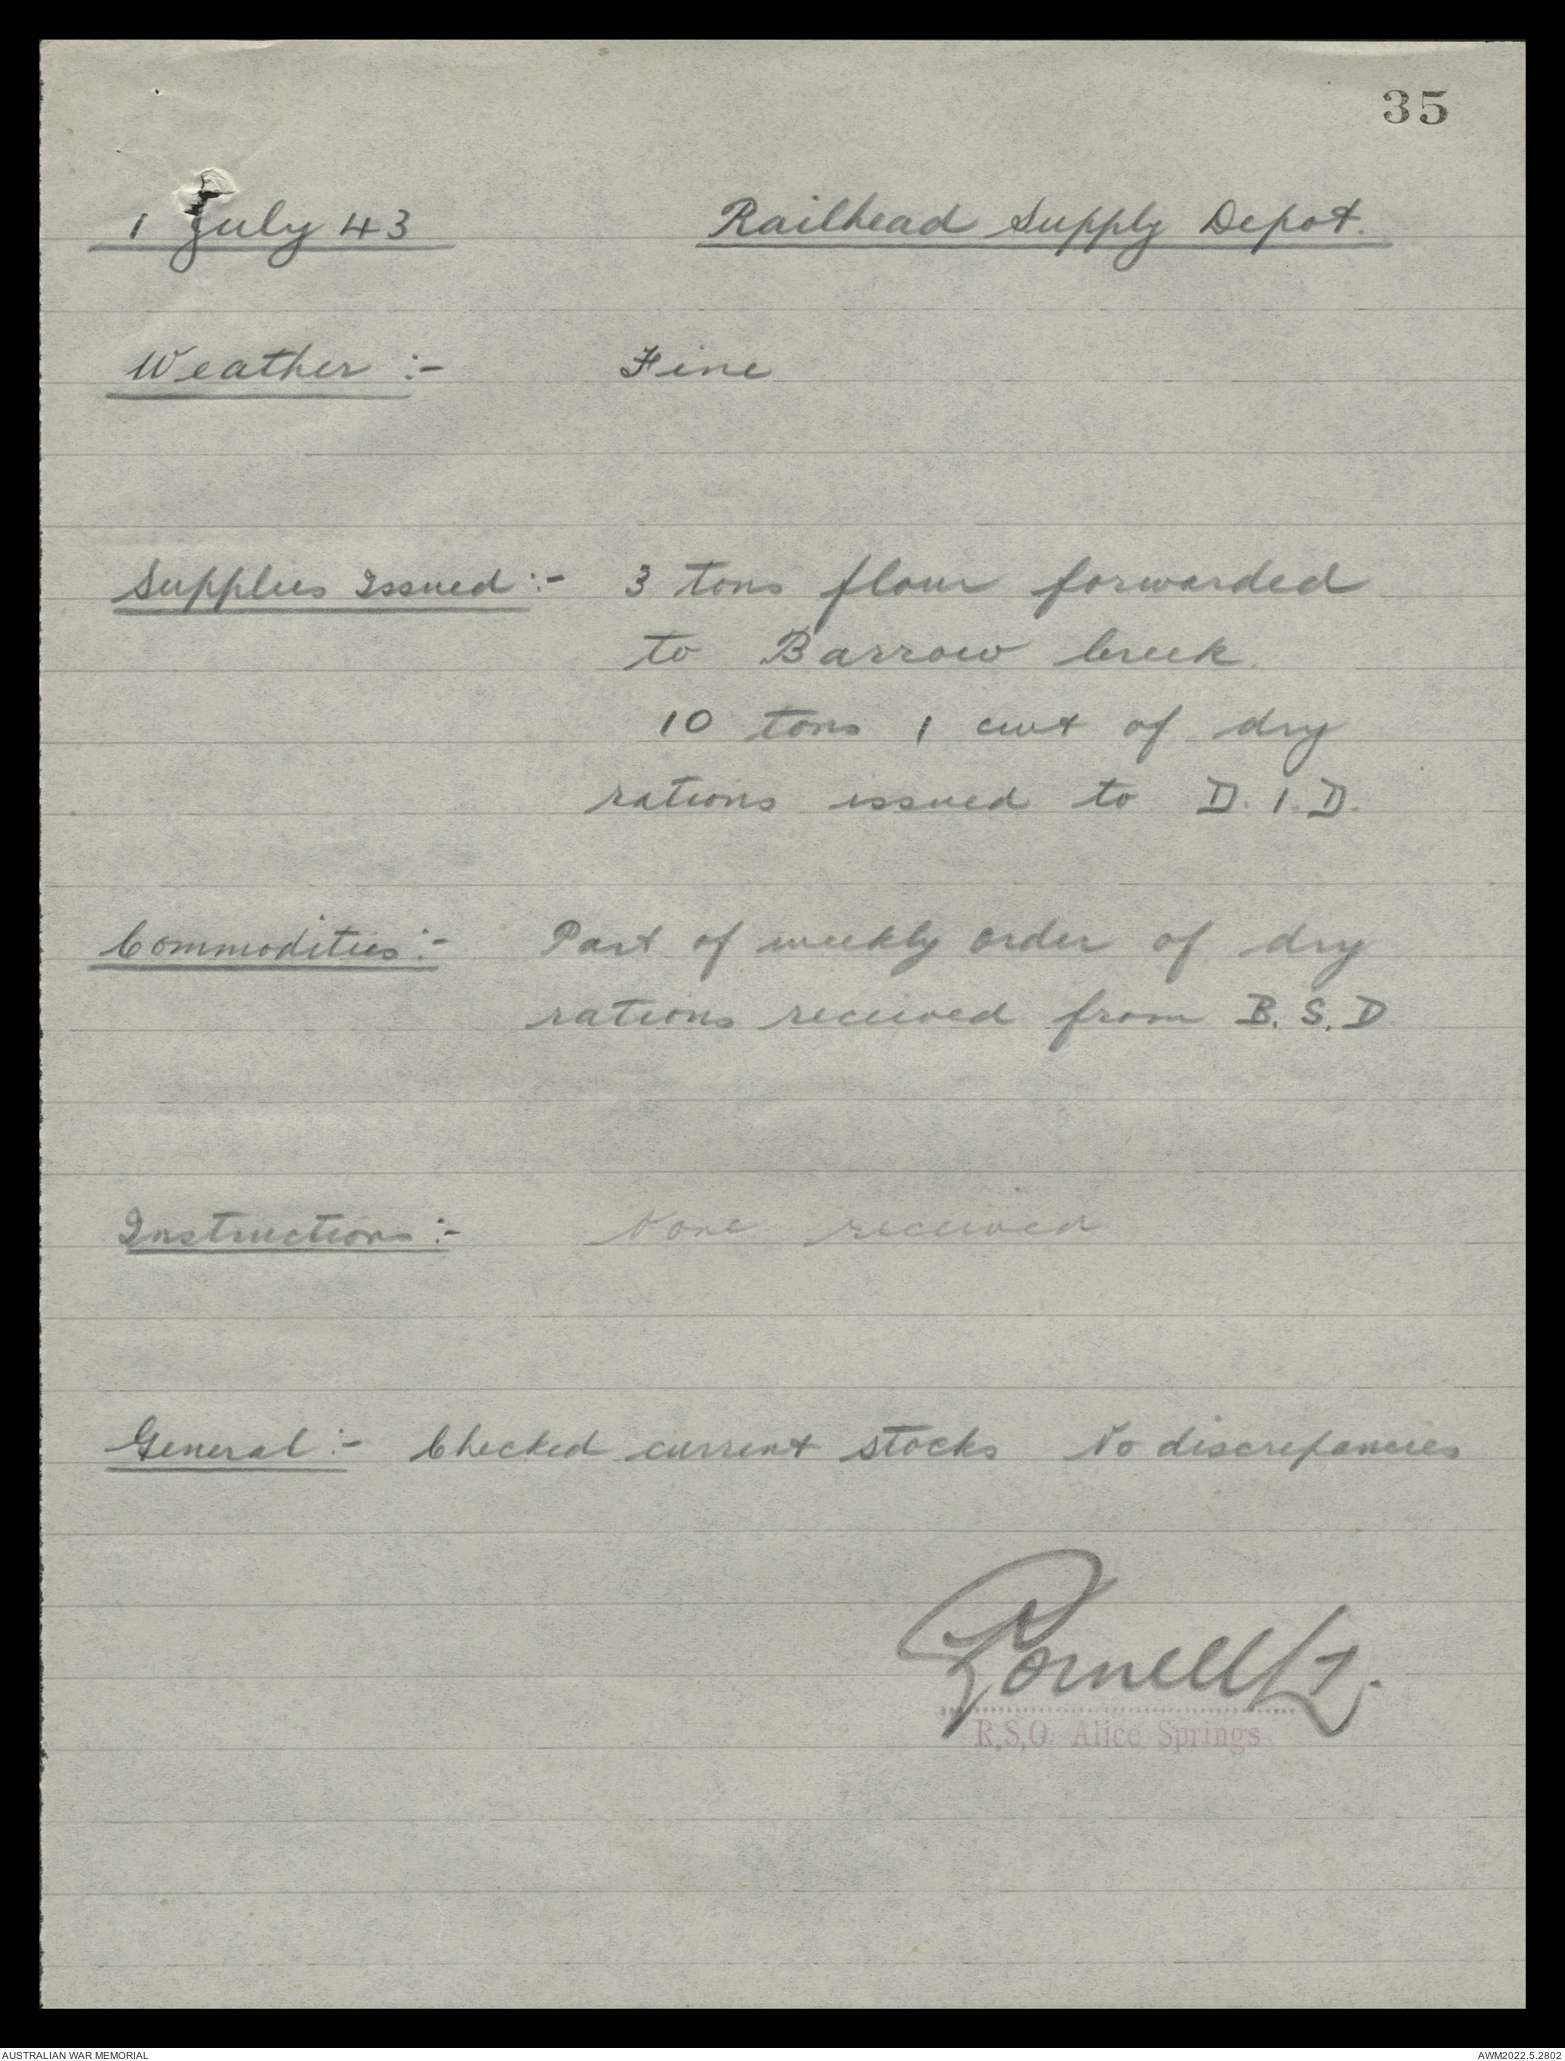 35
1 July 43 Railhead Supply Depot.
Weather :- Fine
Supplies Issued :- 3 tons flour forwarded
to Barrow Creek.
10 tons 1 cwt of dry
rations issued to D.I.D.
Commodities :- Part of weekly order of dry
rations received from B.S.D
Instructions :- None received
General :- Checked current stocks No discrepancies
Cornell Lt.
R.S.O. Alice Springs
AUSTRALIAN WAR MEMORIAL AWM2022.5.2802